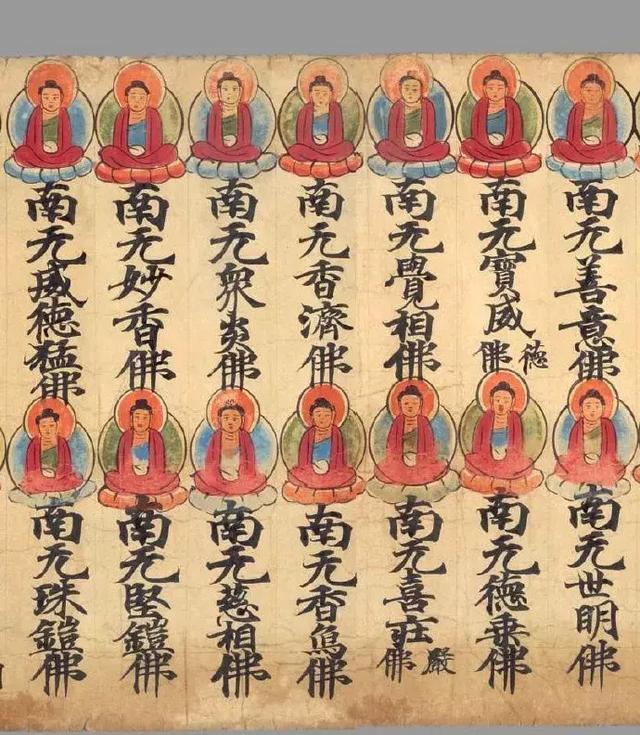 南无善意佛
南无世明佛
南无寶威德佛
南无德乘佛
南无覺相佛
南无喜莊嚴佛
南无香濟佛
南无香象佛
南无衆炎佛
南无慈相佛
南无妙香佛
南无堅鎧佛
南无威德猛佛
南无珠鎧佛